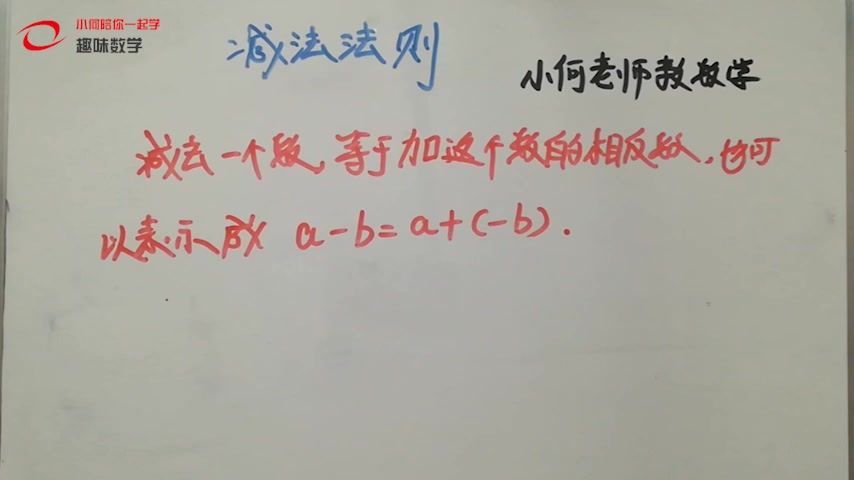 小何陪你一起学
趣味数学
减法法则
小何老师教数学
减去一个数,等于加这个数的相反数,也可
以表示成 a-b=a+(-b).